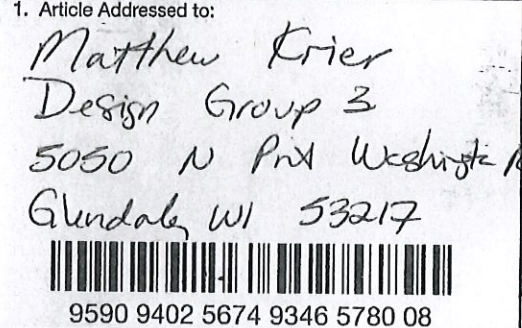 1. Article Addressed to:
Matthew Krier
Design Group 3
5050 N Port Washington
Glendale, WI 53217
9590 9402 5674 9346 5780 08